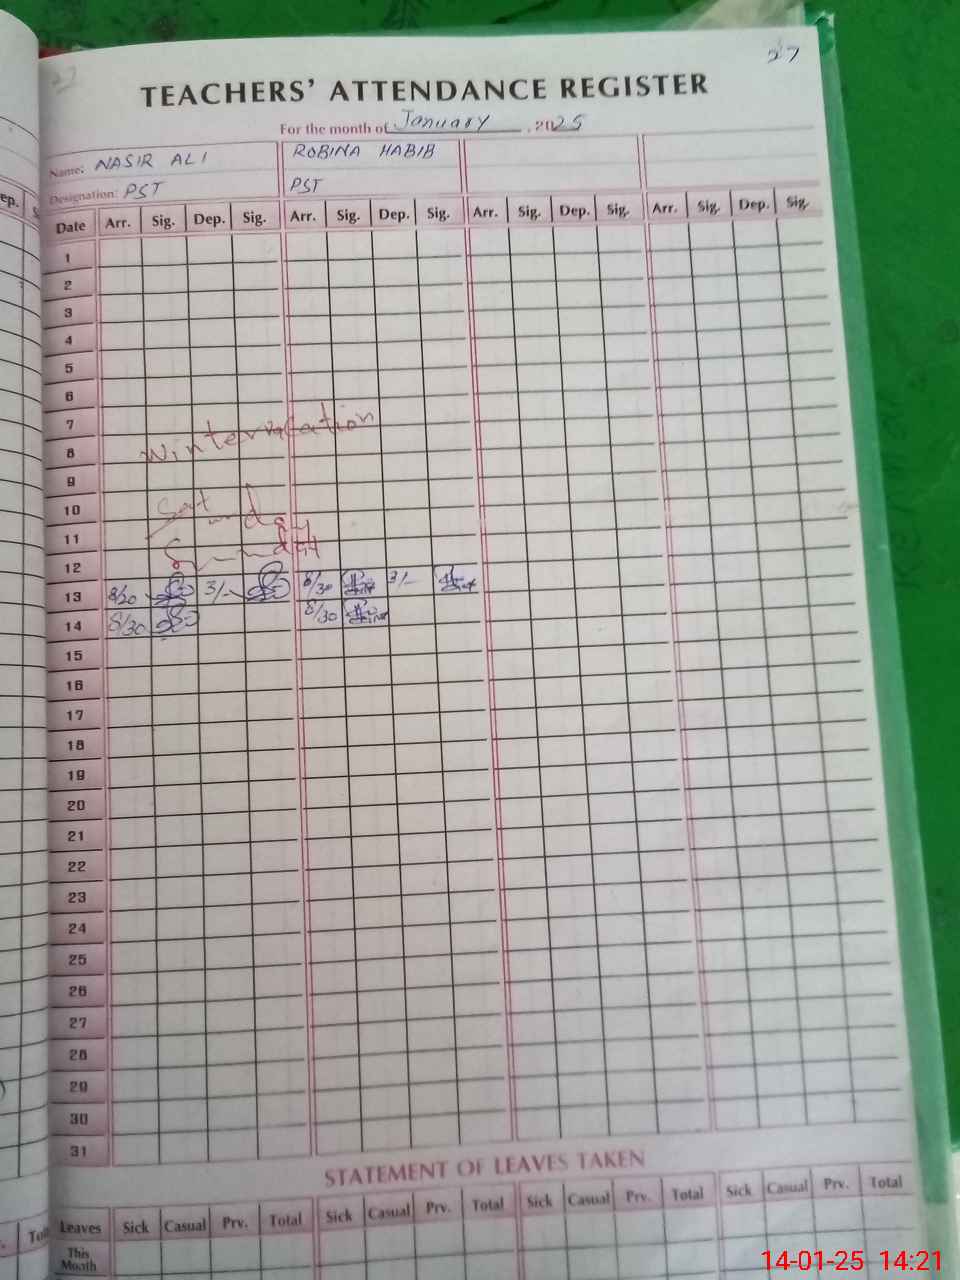 27
TEACHERS' ATTENDANCE REGISTER
For the month of January, 2025
Name: NASIR ALI ROBINA HABIB
Designation: PST PST
Date Arr. Sig. Dep. Sig. Arr. Sig. Dep. Sig. Arr. Sig. Dep. Sig. Arr. Sig. Dep. Sig.
1
2
3
4
5
6
7
Winter vacation
8
9
10
11
Sunday
12
13 8/30 3/- 8/30 3/-
14 8/30 8/30
15
16
17
18
19
20
21
22
23
24
25
26
27
28
29
30
31
STATEMENT OF LEAVES TAKEN
Leaves Sick Casual Prv. Total Sick Casual Prv. Total Sick Casual Prv. Total Sick Casual Prv. Total
This Month
14-01-25 14:21